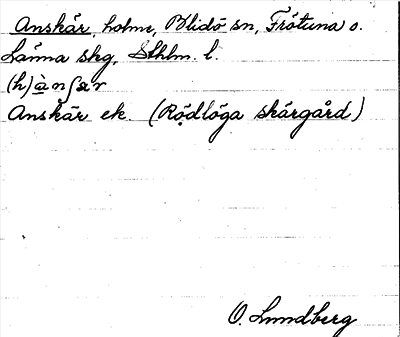 Anskär, holme, Blidö sn, Frötuna o.
Länna skg, Sthlm. l.
(h)ànʃær
Anskär ek. (Rödlöga skärgård)
O. Lundberg